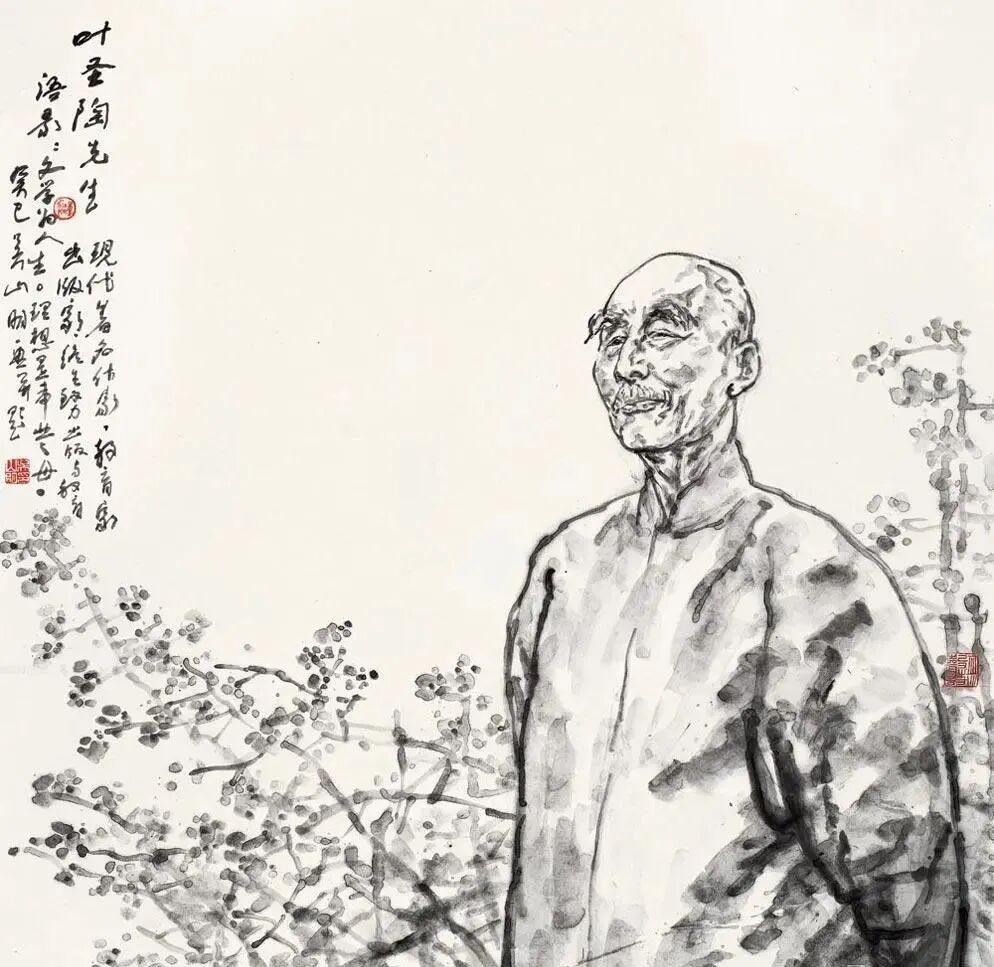 叶圣陶先生
现代著名作家、教育家
出版家，终生致力出版与教育
语录：文学为人生。理想是事业之母。
癸巳吴山明画并题